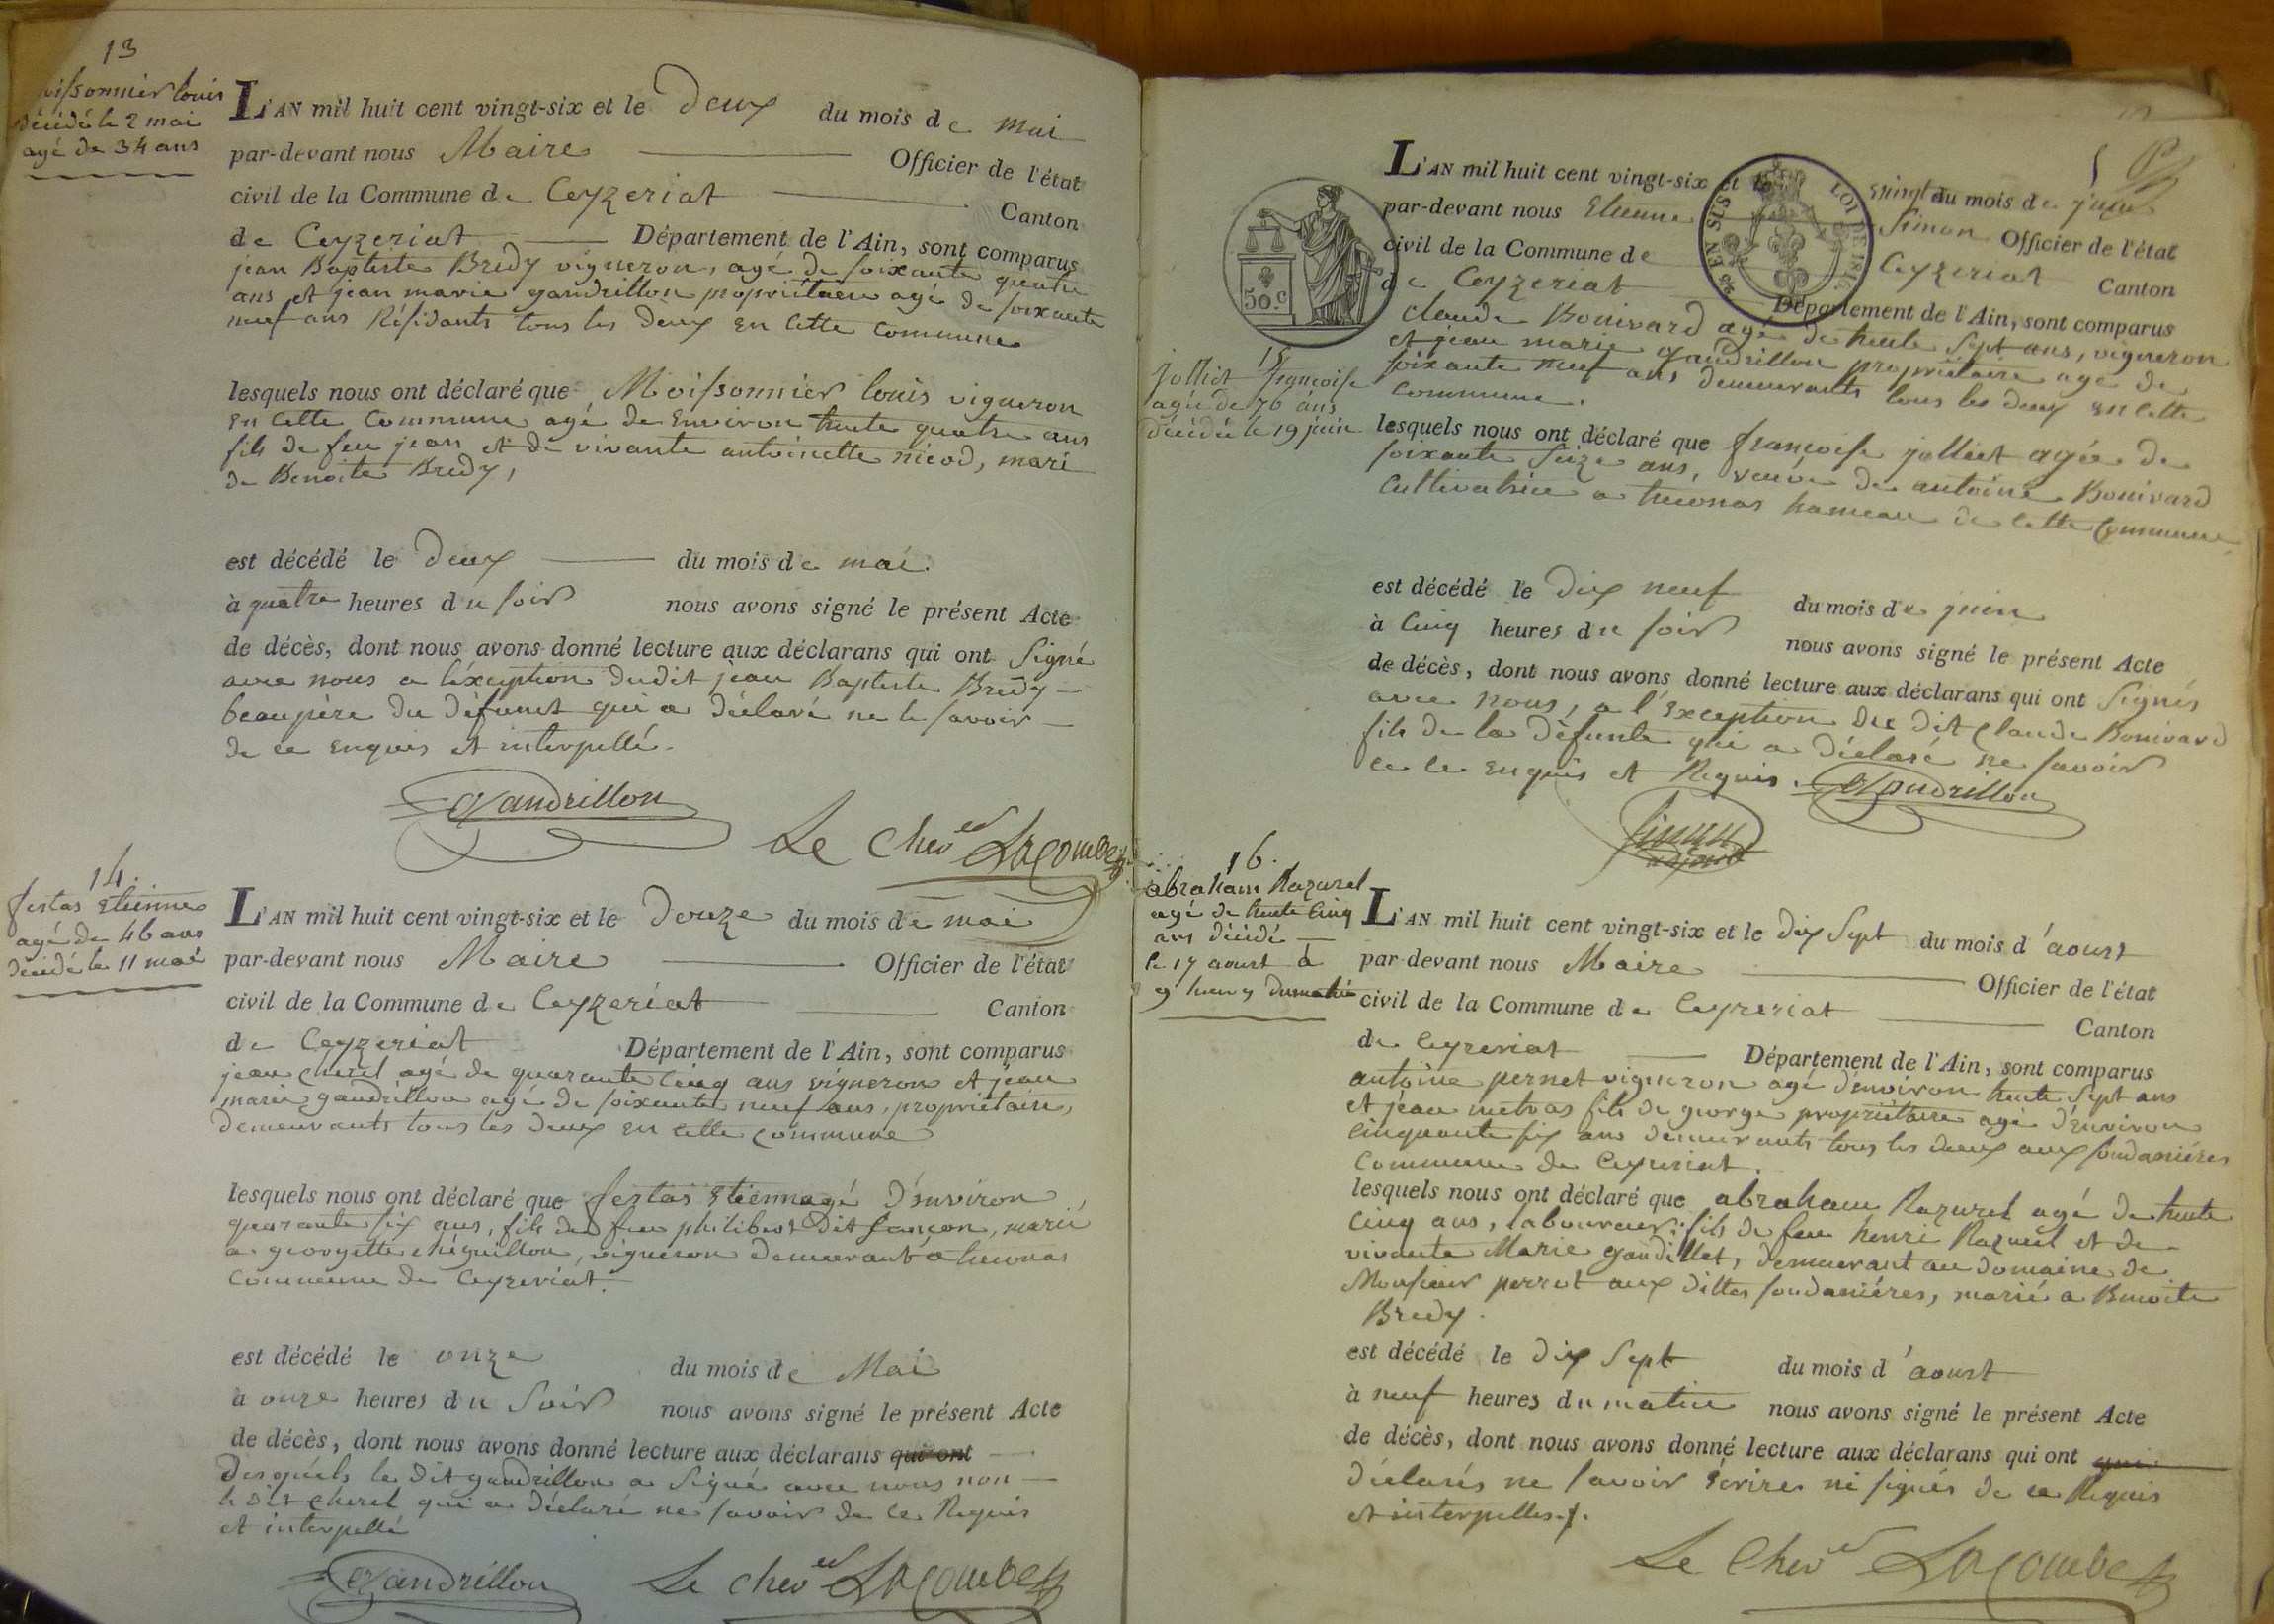 13
Moissonnier louis
décédé le 2 mai
agé de 34 ans
L'AN mil huit cent vingt-six et le Deux du mois de mai
par-devant nous Maire Officier de l'état
civil de la Commune de Ceyzeriat Canton
de Ceyzeriat Département de l'Ain, sont comparus
jean Baptiste Bredy vigneron, agé de soixante quatre
ans et jean marie gandrillon propriétaire agé de soixante
neuf ans Résidants tous les deux en cette commune
lesquels nous ont déclaré que Moissonnier louis vigneron
en cette commune agé de Environ trente quatre ans
fils de feu jean et de vivante antoinette nicod, mari
de Benoite Bredy,
est décédé le deux du mois de mai.
à quatre heures du soir nous avons signé le présent Acte
de décès, dont nous avons donné lecture aux déclarans qui ont signé
avec nous a l'éxception dudit jean Baptiste Bredy
beaupère du défunct qui a déclaré ne le savoir
de ce enquis et interpellé.
Gandrillon
Le chev er Lacombe
14.
festas Etienne
agé de 46 ans
décédé le 11 mai
L'AN mil huit cent vingt-six et le Douze du mois de mai
par-devant nous Maire Officier de l'état
civil de la Commune de Ceyzeriat Canton
de Ceyzeriat Département de l'Ain, sont comparus
jean cherel agé de quarante cinq ans vigneron et jean
marie gandrillon agé de soixante neuf ans, propriétaire,
demeurants tous les deux en cette commune
lesquels nous ont déclaré que festas Etienne agé d'environ
quarante six ans, fils de feu philibert dit, marié
a georgette, vigneron demeurant a treconas
commune de Ceyzeriat.
est décédé le onze du mois de Mai
à onze heures du Soir nous avons signé le présent Acte
de décès, dont nous avons donné lecture aux déclarans qui ont
desquels le dit gandrillon a signé avec nous non
le dit cherel qui a déclaré ne savoir de ce Requis
et interpellé
Gandrillon
Le chev er Lacombe
L'AN mil huit cent vingt-six et le vingt du mois de juin
par-devant nous Etienne Simon Officier de l'état
civil de la Commune de Ceyzeriat Canton
de Ceyzeriat Département de l'Ain, sont comparus
50.c
EN SUS
LOI DE 1816
claude Bonivard agé de trente sept ans, vigneron
et jean marie gandrillon propriétaire agé de
soixante neuf ans demeurants tous les deux en cette
commune.
15
jolliet françoise
agée de 76 ans
décédée le 19 juin
lesquels nous ont déclaré que françoise jolliet agée de
soixante seize ans, veuve de antoine Bonivard
cultivatrice a treconas hameau de cette commune
est décédé le dix neuf du mois de juin
à cinq heures du soir nous avons signé le présent Acte
de décès, dont nous avons donné lecture aux déclarans qui ont signés
avec nous, a l'exception du dit Claude Bonivard
fils de la défunte qui a déclaré ne savoir
de ce enquis et Requis.
Gandrillon
Simon
adjoint
16.
abraham Razurel
agé de trente cinq
ans décédé
le 17 aoust à
9 heures du matin
L'AN mil huit cent vingt-six et le dix Sept du mois d'aoust
par-devant nous Maire Officier de l'état
civil de la Commune de Ceyzeriat Canton
de Ceyzeriat Département de l'Ain, sont comparus
antoine pernet vigneron agé d'environ trente sept ans
et jean metras fils de george propriétaire agé d'environ
cinquante six ans demeurants tous les deux aux soudanières
commune de Ceyzeriat.
lesquels nous ont déclaré que abraham Razurel agé de trente
cinq ans, laboureur, fils de feu henri Razurel et de
vivante Marie gandillet, demeurant au domaine de
Monsieur perrot aux dittes soudanières, marié a Benoite
Bredy.
est décédé le dix Sept du mois d'aoust
à neuf heures du matin nous avons signé le présent Acte
de décès, dont nous avons donné lecture aux déclarans qui ont qui
déclarés ne savoir écrire ni signer de ce Requis
et interpelles./.
Le Chev er Lacombe